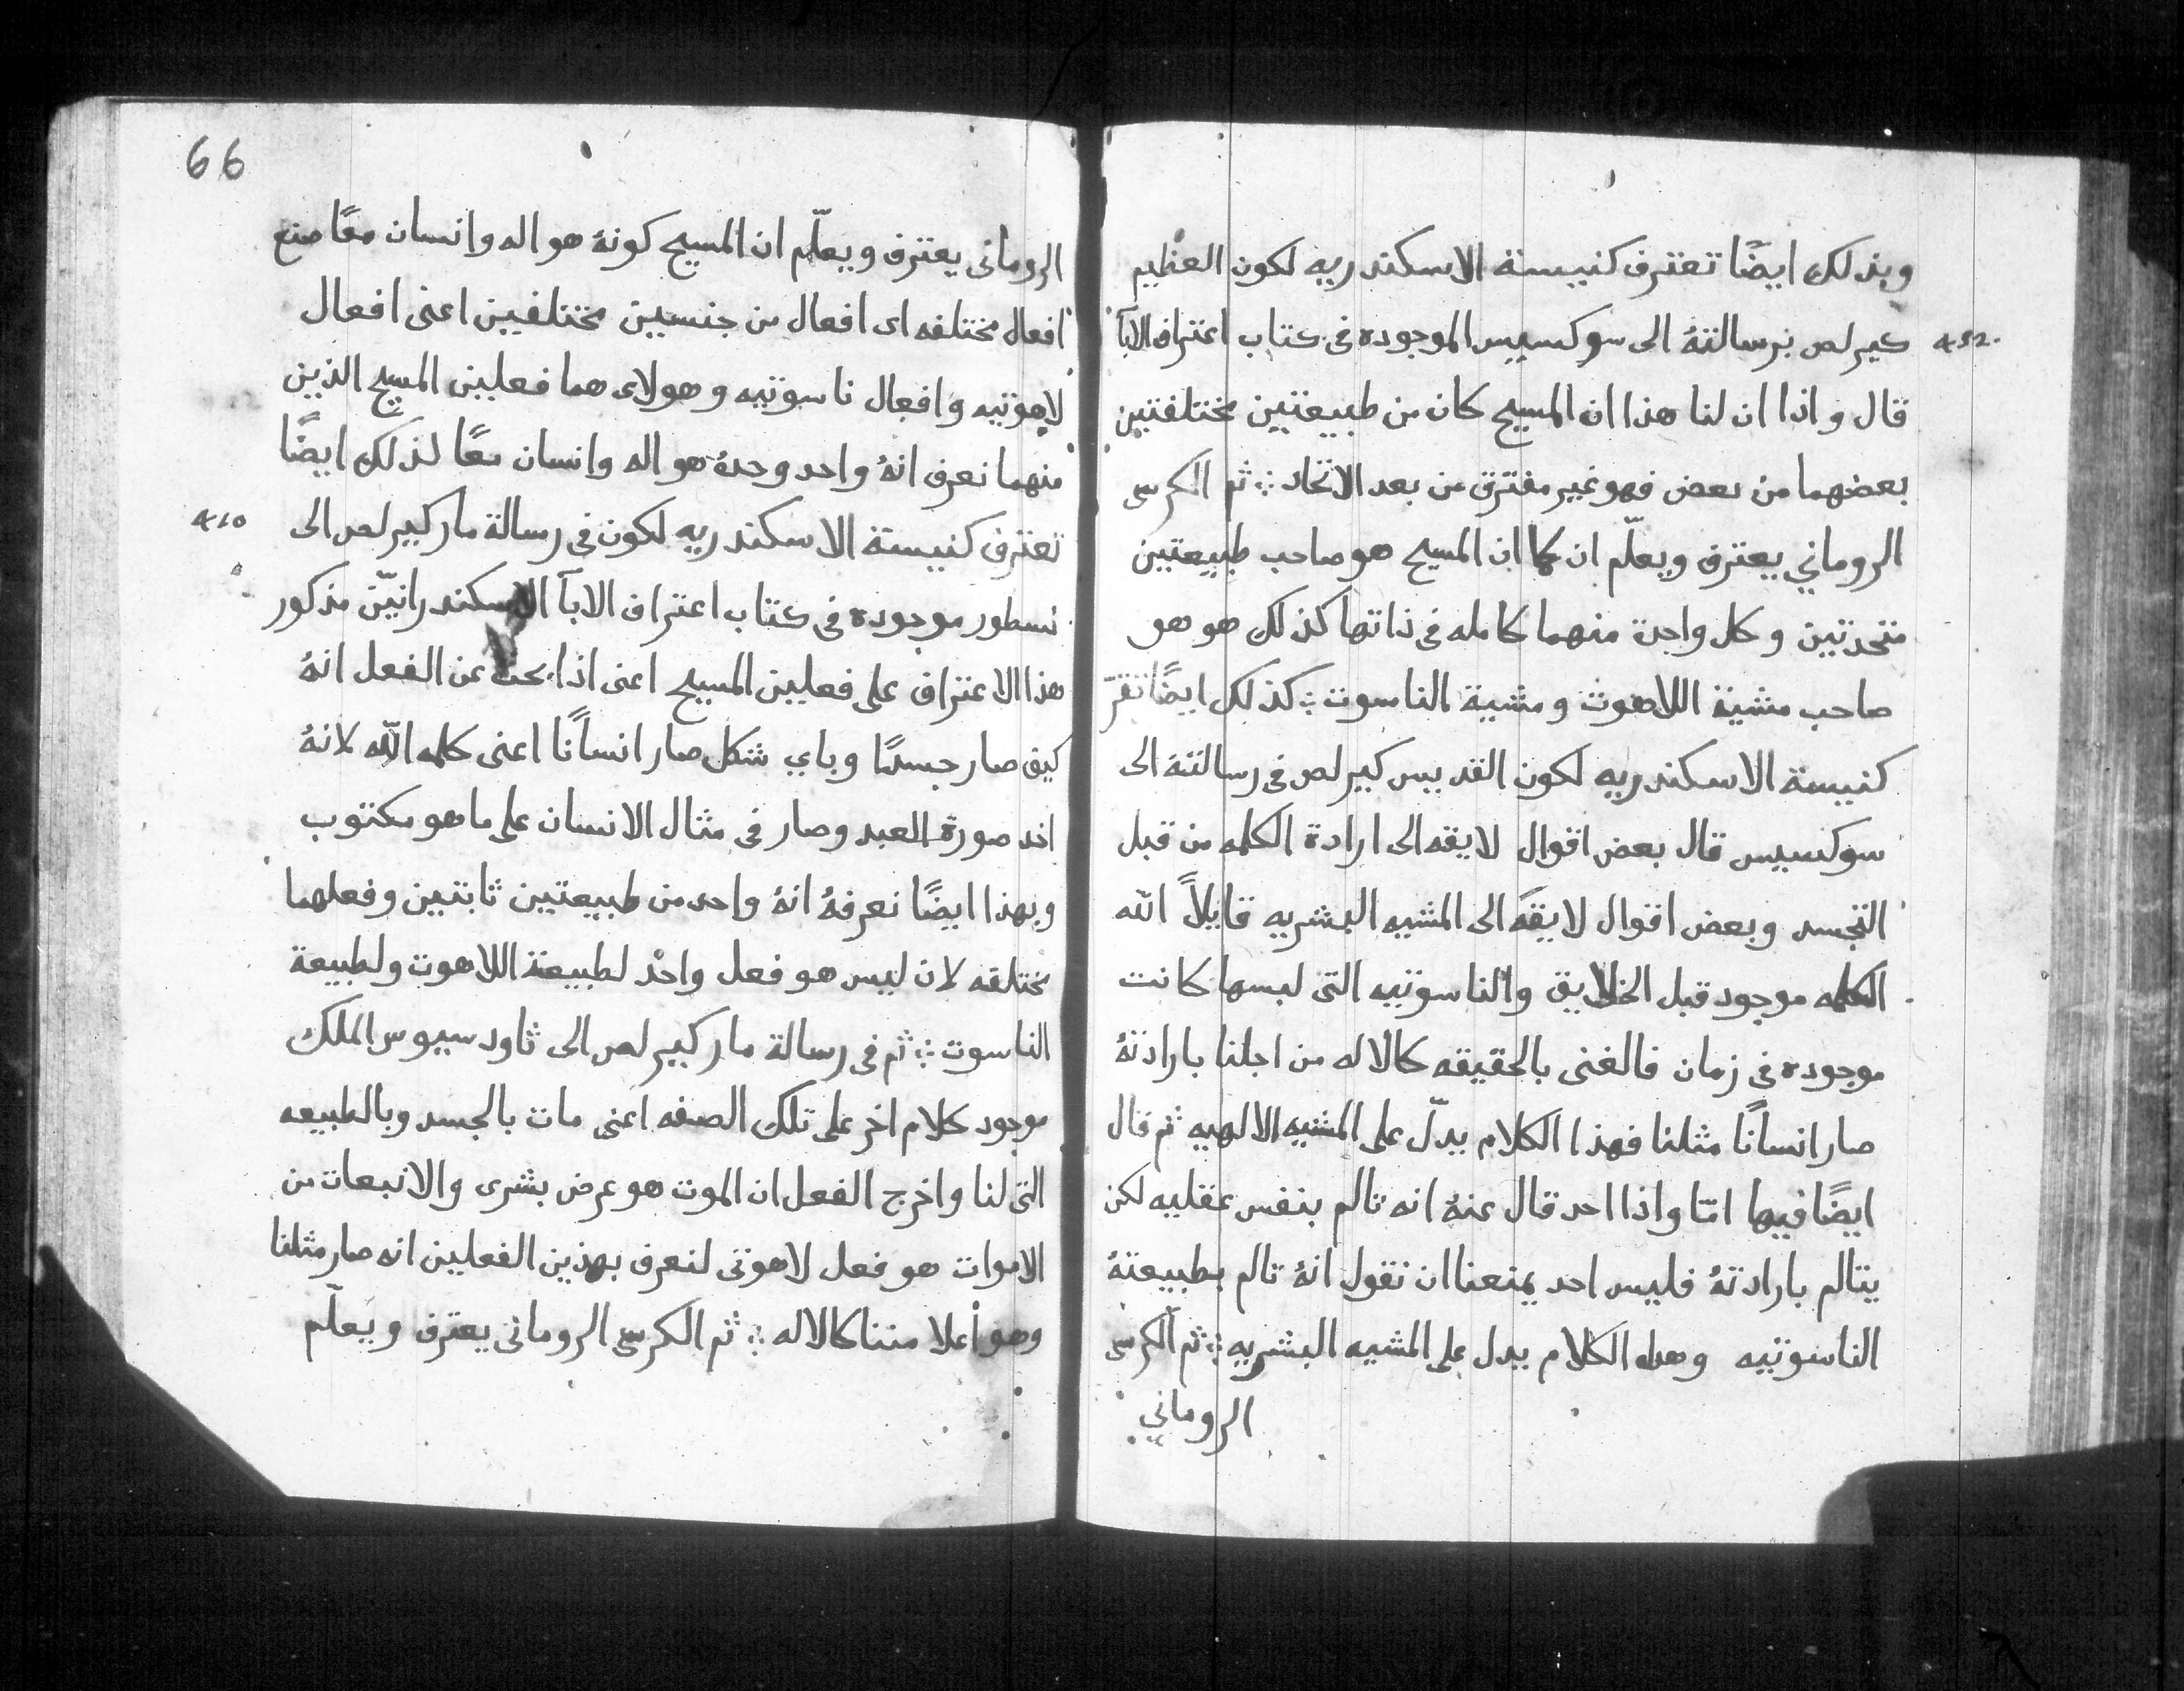 وبذلك ايضًا تعترف كنيسة الاسكندريه لكون العظيم
كيرلص برسالتهُ الى سوكسيس الموجوده فى كتاب اعتراف الابآ
قال واذا ان لنا هذا ان المسيح كان من طبيعتين مختلفتين
بعضهما من بعض فهو غير مفترق من بعد الاتحاد ثم الكرسى
الروماني يعترف ويعلّم ان كما ان المسيح هو صاحب طبيعتين
متحدتين وكل واحدة منهما كامله فى ذاتها كذلك هو هو
صاحب مشية اللاهوت ومشية الناسوت كذلك ايضًا تقرّ
كنيسة الاسكندريه لكون القديس كيرلص فى رسالتهُ الى
سوكسيس قال بعض اقوال لايقه الى ارادة الكلمه من قبل
التجسد وبعض اقوال لايقه الى المشيه البشريه قايلاً الله
الكلمه موجود قبل الخلايق والناسوتيه التى لبسها كانت
موجوده فى زمان فالغنى بالحقيقه كالاله من اجلنا بارادتهُ
صار انسانًا مثلنا فهذا الكلام يدلّ على المشيه الالهيه ثم قال
ايضًا فيها امّا واذا احد قال عنهُ انه تالم بنفس عقليه لكن
يتالم بارادتهُ فليس احد يمنعنا ان نقول انهُ تالم بطبيعتهُ
الناسوتيه وهذا الكلام يدل على المشيه البشريه ثم الكرسى
الروماني
66
الرومانى يعترف ويعلّم ان المسيح كونهُ هو اله وانسان معًا صنع
افعال مختلفه اى افعال من جنسين مختلفين اعنى افعال
لاهوتيه وافعال ناسوتيه وهولاى هما فعلين المسيح الذين
منهما نعرف انهُ واحد وحدهُ هو اله وانسان معًا لذلك ايضًا
تعترف كنيسة الاسكندريه لكون فى رسالة مار كيرلص الى
نسطور موجوده فى كتاب اعتراف الابآ الاسكندرانيّن مذكور
هذا الاعتراف على فعلين المسيح اعنى اذا بحث عن الفعل انهُ
كيف صار جسدًا وباي شكل صار انسانًا اعنى كلمه الله لانهُ
اخد صورة العبد وصار فى مثال الانسان على ما هو مكتوب
وبهذا ايضًا نعرفهُ انهُ واحد من طبيعتين ثابتين وفعلهما
مختلفه لان ليس هو فعل واحد لطبيعة اللاهوت ولطبيعة
الناسوت ثم فى رسالة مار كيرلص الى ثاودسيوس الملك
موجود كلام اخر على تلك الصفه اعنى مات بالجسد وبالطبيعه
التى لنا واخرج الفعل ان الموت هو عرض بشرى والانبعات من
الاموات هو فعل لاهوتى لنعرف بهذين الفعلين انه صار مثلنا
وهو أعلا مننا كالاله ثم الكرسى الرومانى يعترف ويعلّم